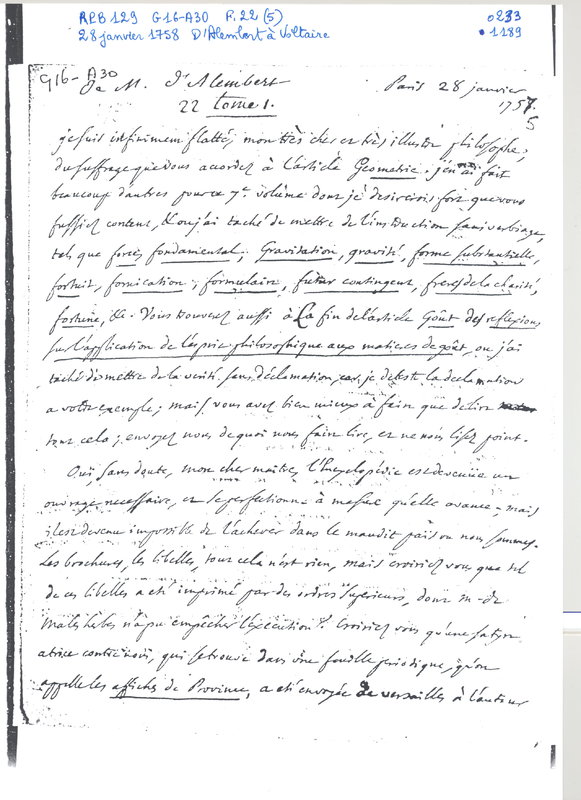 REB 129 G16-A30 F. 22 (5) 0233
28 janvier 1758 D'Alembert à Voltaire 1189
G16-A30
De M. d'Alembert Paris 28 janvier
22 tome 1. 1757.
je suis infiniment flatté, mon très cher et très illustre philosophe,
du suffrage que vous accordez à l'article Geometrie. j'en ai fait
beaucoup d'autres pour ce 7e. volume dont je desirerois fort que vous
fussiez content, & ou j'ai taché de mettre de l'instruction sans verbiage,
tels que forces fondamental. Gravitation, gravité, forme substantielle,
fortuit, fornication, formulaire, futur contingent, freres de la charité,
fortune, &c. Vous trouverez aussi à La fin de l'article Goût des reflexions
sur l'application de l'esprit philosophique aux matieres de goût, ou j'ai
taché de mettre de la verité sans déclamation, car je deteste la declamation
a votre exemple; mais vous avez bien mieux à faire que de lire
tout cela; envoyez nous de quoi nous faire lire, et ne nous lisez point.
Oui, sans doute, mon cher maître, l'Encyclopédie est devenue un
ouvrage necessaire, et se perfectionne à mesure qu'elle avance; mais
il est devenu impossible de l'achever dans le maudit païs ou nous sommes.
Les brochures, les libelles, tout cela n'est rien, mais croiriez vous que tel
de ces libelles a eté imprimé par des ordres superieurs, dont m. de
Malesherbes n'a pu empêcher l'execution? Croiriez vous qu'une satyre
atroce contre nous, qui se trouve dans une feuille periodique, qu'on
appelle les affiches de Province, a eté envoyée de versailles à l'auteur